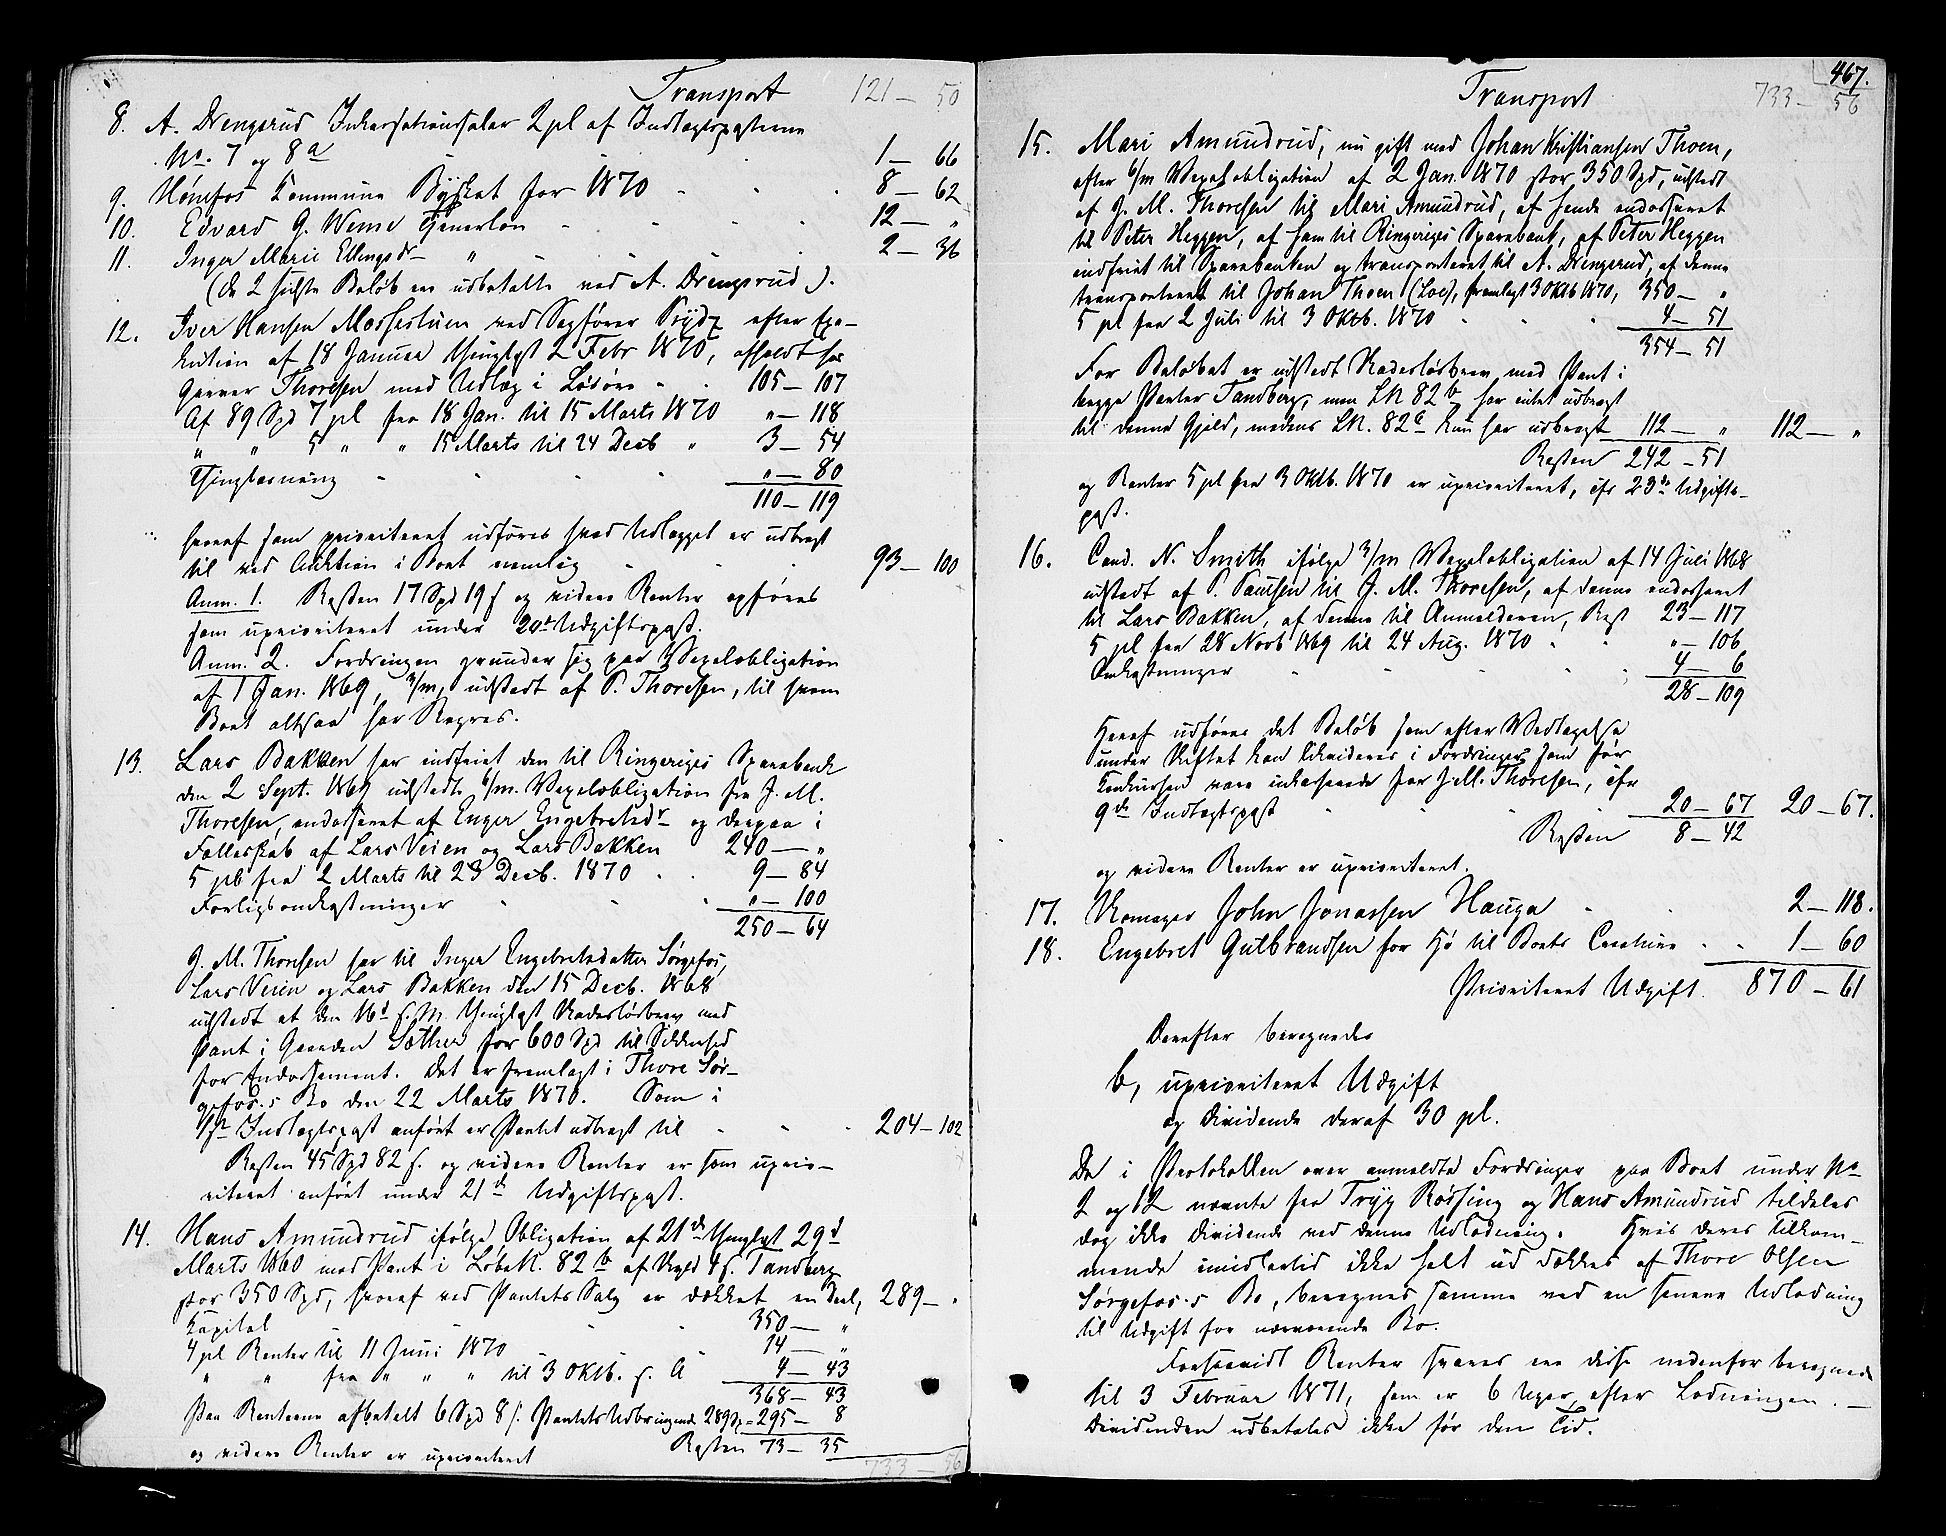 Transport 121 — 50
8. A. Drengsrud Inkassationssalær 2 pl af Indtægtsposterne
No. 7 og 8a 1 — 66
9. Hønefos Kommune Byskat for 1870 8 — 62
10. Edvard G. Weme Tjenerløn 12 — „
11. Inger Marie Ellingsdr „ 2 — 36
(de 2 sidste Beløb ere udbetalte ved A. Drengsrud).
12. Iver Hansen Mosfestuen ved Sagfører Frydz efter Exe-
kution af 18 Januar thinglyst 2 Febr 1870, afholdt hos
Gunner Thoresen med Udlæg i Løsøre 105 — 107
Af 89 Spd 7 pl fra 18 Jan. til 15 Marts 1870 „ — 118
„ „ 5 „ „ 15 Marts til 24 Decb „ 3 — 54
Thinglæsning „ — 80
110 — 119
hvoraf som prioriteret udføres hvad Udlægget er udbragt
til ved Auktion i Boet nemlig 93 — 100
Anm. 1. Resten 17 Spd 19 s og videre Renter opføres
som uprioriteret under 20de Udgiftspost.
Anm. 2. Fordringen grunder sig paa Vexelobligation
af 1 Jan. 1869, 3/m, udstedt af P. Thoresen, til hvem
Boet altsaa har Regres.
13. Lars Bakken har indfriet den til Ringeriges Sparebank
den 2 Sept. 1869 udstedte 6/m. Vexelobligation fra J. M.
Thoresen, endosseret af Inger Engebretsdr og derpaa i
Fællesskab af Lars Veien og Lars Bakken 240 — „
5 pl fra 2 Marts til 23 Decb. 1870 9 — 84
Forligsomkostninger „ — 100
250 — 64
J. M. Thoresen har til Inger Engebretsdatter Sørgefos,
Lars Veien og Lars Bakken den 15 Decb. 1868
udstedt et den 16d s. M. thinglyst Skadesløsbrev med
Pant i Gaarden Sæther for 600 Spd til Sikkerhed
for Endossement. Det er fremlagt i Thore Sør-
gefos.s Bo den 22 Marts 1870. Som i
1ste Indtægtspost anført er Pantet udbragt til 204 — 102
Resten 45 Spd 82 s. og videre Renter er som uprio-
riteret anført under 21de Udgiftspost.
14. Hans Amundrud ifølge Obligation af 21de thinglyst 29d
Marts 1860 med Pant i Løbe N. 82 b af Skyld 4 s. Tandberg
stor 350 Spd, hvoraf ved Pantets Salg er dækket en Deel, 289 — „
Kapital 350 — „
4 pl Renter til 11 Juni 1870 14 — „
„ „ fra „ „ „ til 3 Oktb. s. A 4 — 43
368 — 43
Paa Renterne afbetalt 6 Spd 8 s. Pantets Udbringende 289 Sp = 295 — 8
og videre Renter er uprioriteret Resten 73 — 35
733 — 56
467.
Transport 733 — 56
15. Mari Amundrud, nu gift med Johan Kristiansen Thoen,
efter 6/m Vexelobligation af 2 Jan. 1870 stor 350 Spd, udstedt
af J. M. Thoresen til Mari Amundrud, af hende endosseret
til Peter Heggen, af ham til Ringeriges Sparebank, af Peter Heggen
indfriet til Sparebanken og transporteret til A. Drengsrud, af denne
transporteret til Johan Thoen (Loe), fremlagt 3 Oktb 1870, 350 — „
5 pl fra 2 Juli til 3 Oktb. 1870 4 — 51
354 — 51
For Beløbet er udstedt Skadesløsbrev med Pant i
begge Parter Tandberg, men LN 82b har intet udbragt
til denne Gjeld, medens LN. 82a kun har udbragt 112 — „ 112 — „
Resten 242 — 51
og Renter 5 pl fra 3 Oktb. 1870 er uprioriteret, cfr 23de Udgifts-
post.
16. Cand. N. Smith ifølge 3/m Vexelobligation af 14 Juli 1868
udstedt af P. Paulsen til J. M. Thoresen, af denne endosseret
til Lars Bakken, af denne til Anmelderen, Rest 23 — 117
5 pl fra 28 Novb 1869 til 24 Aug. 1870 „ — 106
Omkostninger 4 — 6
28 — 109
Heraf udføres det Beløb som efter Vedtagelse
under Skiftet kan likvideres i Fordringer som før
Konkursen vare inkasserede for J. M. Thoresen, cfr
9de Indtægtspost 20 — 67 20 — 67.
Resten 8 — 42
og videre Renter er uprioriteret.
17. Skomager John Jonassen Hauga 2 — 118.
18. Engebret Gulbrandsen for Hø til Boets Creature 1 — 60
Prioriteret Udgift. 870 — 61
Derefter beregnedes
b, uprioriteret Udgift
og Dividende deraf 30 pl.
De i Protokollen over anmeldte Fordringer paa Boet under No
2 og 12 nævnte fra Tryg Røssing og Hans Amundrud tildeles
dog ikke Dividende ved denne Udlodning. Hvis deres Tilkom-
mende imidlertid ikke helt ud dækkes af Thore Olsen
Sørgefos.s Bo, beregnes samme ved en senere Udlodning
til Udgift for nærværende Bo.
Forsaavidt Renter svares ere disse nedenfor beregnede
til 3 Februar 1871, som er 6 Uger efter Lodningen. —
Dividenden udbetales ikke før den Tid.